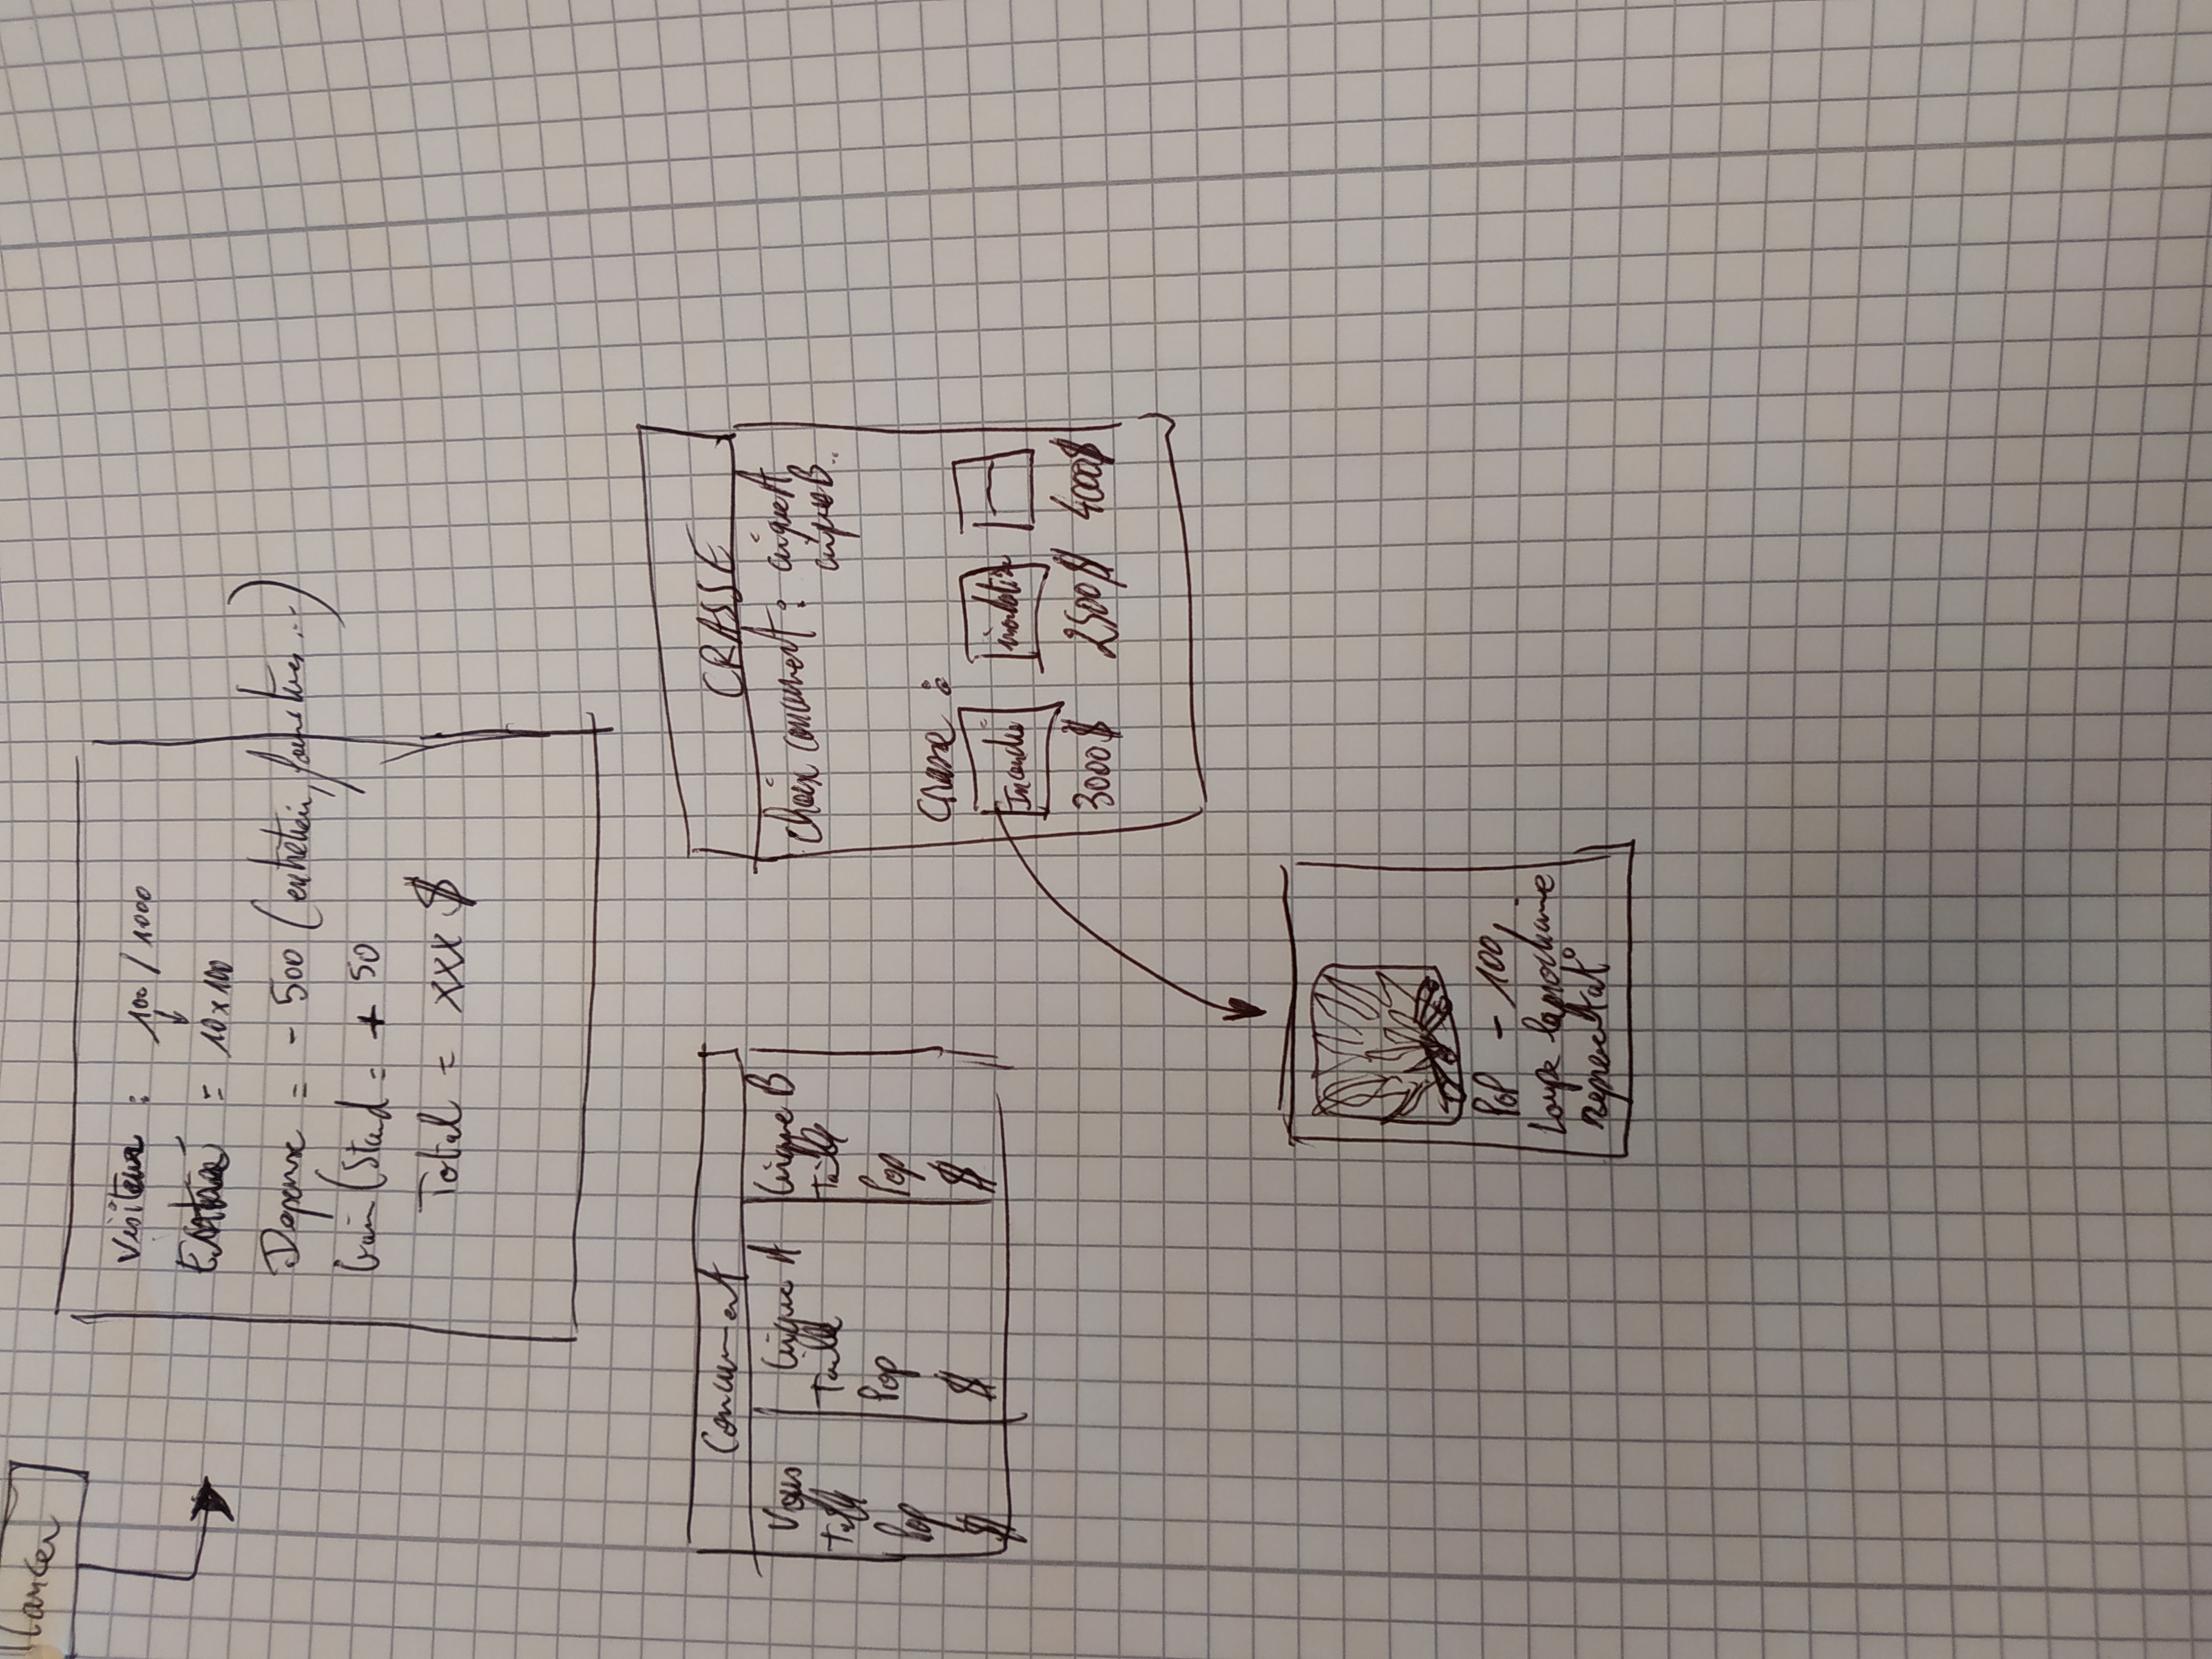 Lancer
Visiteur : 100 / 1000
Entrée = 10 x 100
Depense = - 500 (entretien, fournitures ...)
Gain (Stand = + 50
Total = xxx $
Concurrent
Vous Cirque A Cirque B
Taille Taille Taille
Pop Pop Pop
$ $ $
CRASSE
Choix concurrent : cirque A
cirque B..
Crasse :
Incendie inondation
3000$ 2500$ 4000$
Pop - 100
Loupe la prochaine
representat°